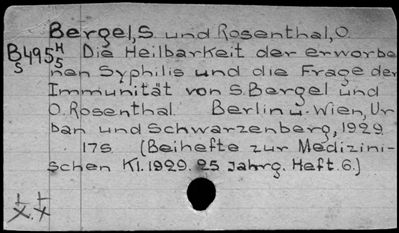 Bergel, S. und Rosenthal, O.
B495 H5 Die Heilbarkeit der erworbe
S
nen Syphilis und die Frage der
Immunität von S. Bergel und
O. Rosenthal. Berlin u. Wien, Ur
ban und Schwarzenberg, 1929
17s (Beihefte zur Medizini-
schen Kl. 1929. 25 Jahrg. Heft. 6.)